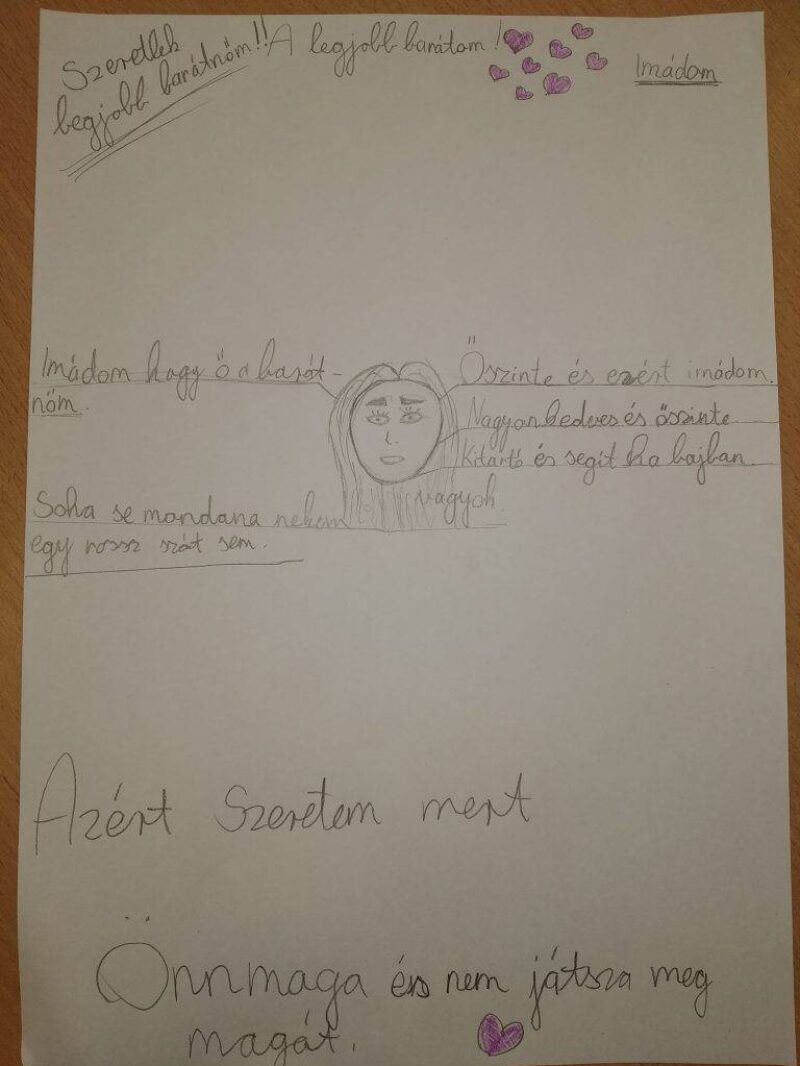 Szeretlek
legjobb barátnőm!!
A legjobb barátom!
Imádom
Imádom hogy ő a barát-
nőm.
Őszinte és ezért imádom.
Nagyon kedves és őszinte
Kitartó és segít ha bajban
vagyok
Soha se mondana nekem
egy rossz szót sem.
Azért Szeretem mert
Önnmaga és nem játsza meg
magát.